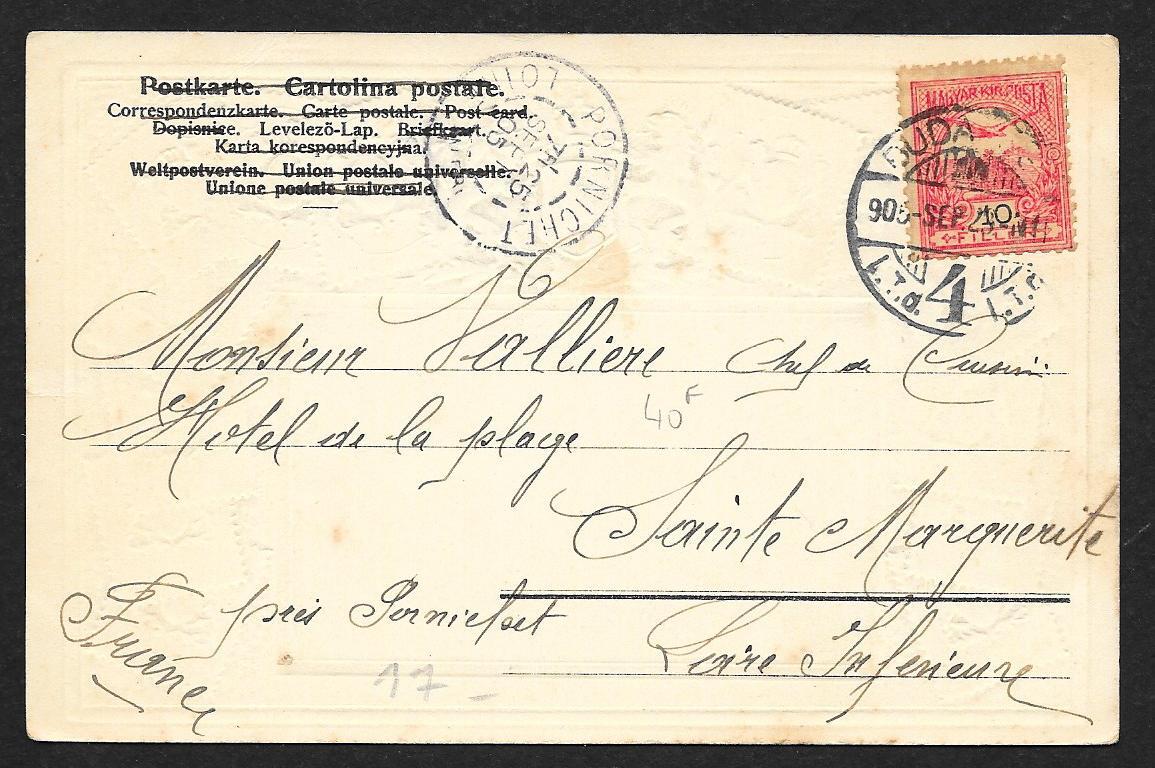 Postkarte. Cartolina postale.
Correspondenzkarte. Carte postale. Post card.
Dopisnice. Levelező-Lap. Briefkaart.
Karta korespondencyjna.
Weltpostverein. Union postale universelle.
Unione postale universale.
PORNICHET
LOIRE
25
SEPT
05
MAGYAR KIR. POSTA
10
BUDA
905 SEP
4
I.T.Ø. I.T.
Monsieur Valliere Chef de Cuisine
Hotel de la plage
40 F
Sainte Marguerite
près Pornichet
Loire Inferieure
France
17